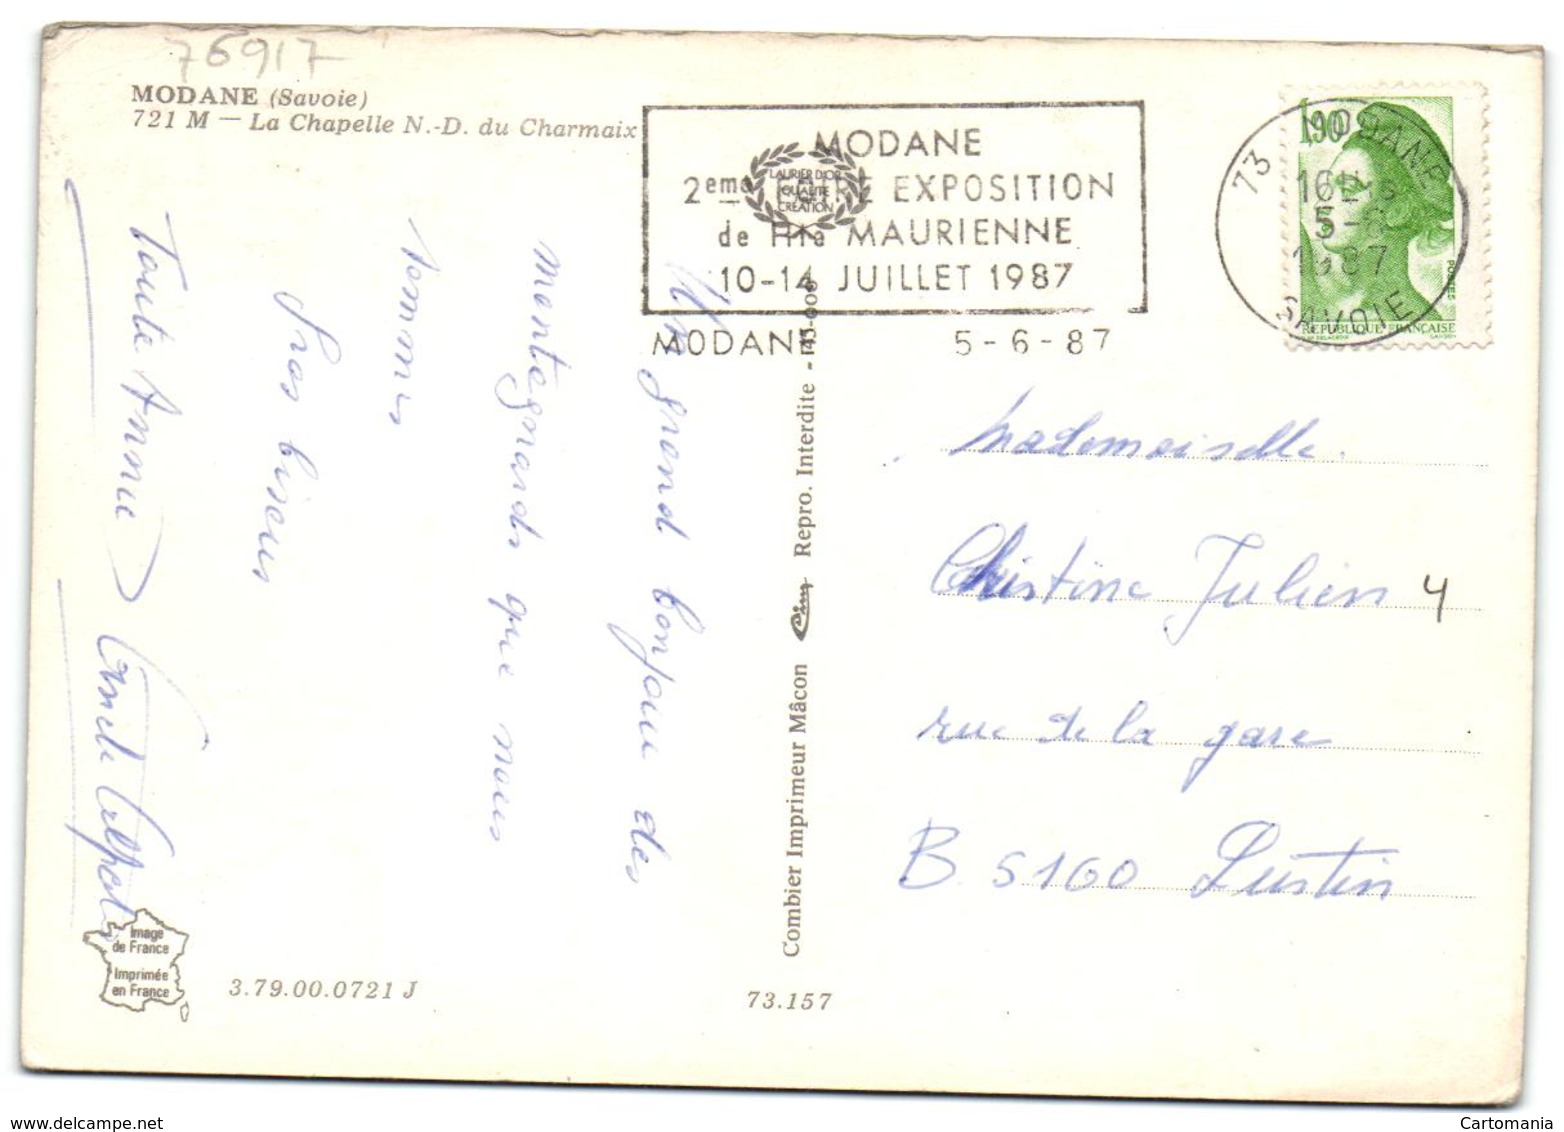 76917
MODANE (Savoie)
721 M — La Chapelle N.-D. du Charmaix
MODANE
2eme FOIRE EXPOSITION
de Hte MAURIENNE
10-14 JUILLET 1987
MODANE 5-6-87
LAURIER D'OR
QUALITE
CREATION
73 MODANE
16H
5-6
1987
SAVOIE
1,90
POSTES
REPUBLIQUE FRANÇAISE
Un grand bonjour des
montagnards que nous
sommes
Gros bisous
Tante Annie
Combier Imprimeur Mâcon Cim Repro. Interdite -
Mademoiselle
Christine Julien 4
rue de la gare
B. 5160 Lustin
Image
de France
Imprimée
en France
3.79.00.0721 J
73.157
Cartomania